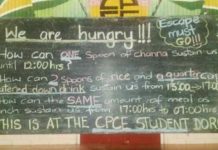 We are hungry!!!
Escape must GO!!!
How can ONE Spoon of channa sustain us
until 12:00hrs?
How can 2 Spoons of rice and a quarter cup
watered down drink sustain us from 15:00-17:00
How can the SAME amount of meal as
lunch sustain us from 17:00hrs to 07:00hrs
THIS IS AT THE CPCE STUDENT DORM